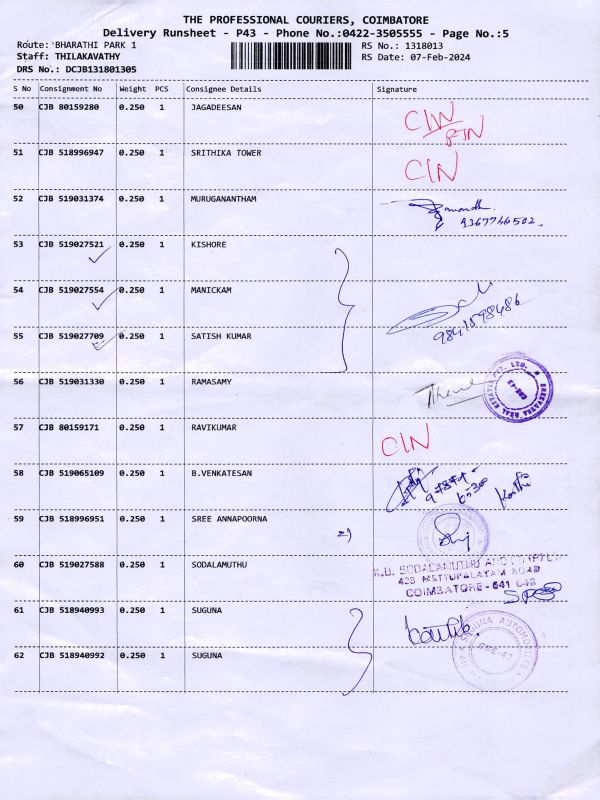 THE PROFESSIONAL COURIERS, COIMBATORE
Delivery Runsheet - P43 - Phone No.:0422-3505555 - Page No.:5
Route: BHARATHI PARK 1 RS No.: 1318013
Staff: THILAKAVATHY RS Date: 07-Feb-2024
DRS No.: DCJB131801305
S No Consignment No Weight PCS Consignee Details Signature
50 CJB 80159280 0.250 1 JAGADEESAN CIN
51 CJB 518996947 0.250 1 SRITHIKA TOWER CIN
52 CJB 519031374 0.250 1 MURUGANANTHAM
9367746502
53 CJB 519027521 0.250 1 KISHORE
54 CJB 519027554 0.250 1 MANICKAM
9841598486
55 CJB 519027709 0.250 1 SATISH KUMAR
56 CJB 519031330 0.250 1 RAMASAMY
57 CJB 80159171 0.250 1 RAVIKUMAR CIN
58 CJB 519065109 0.250 1 B.VENKATESAN
59 CJB 518996951 0.250 1 SREE ANNAPOORNA
2)
60 CJB 519027588 0.250 1 SODALAMUTHU
K.U. SODALAMUTHU AND
428 METTUPALAYAM ROAD
COIMBATORE - 641 043
61 CJB 518940993 0.250 1 SUGUNA
62 CJB 518940992 0.250 1 SUGUNA